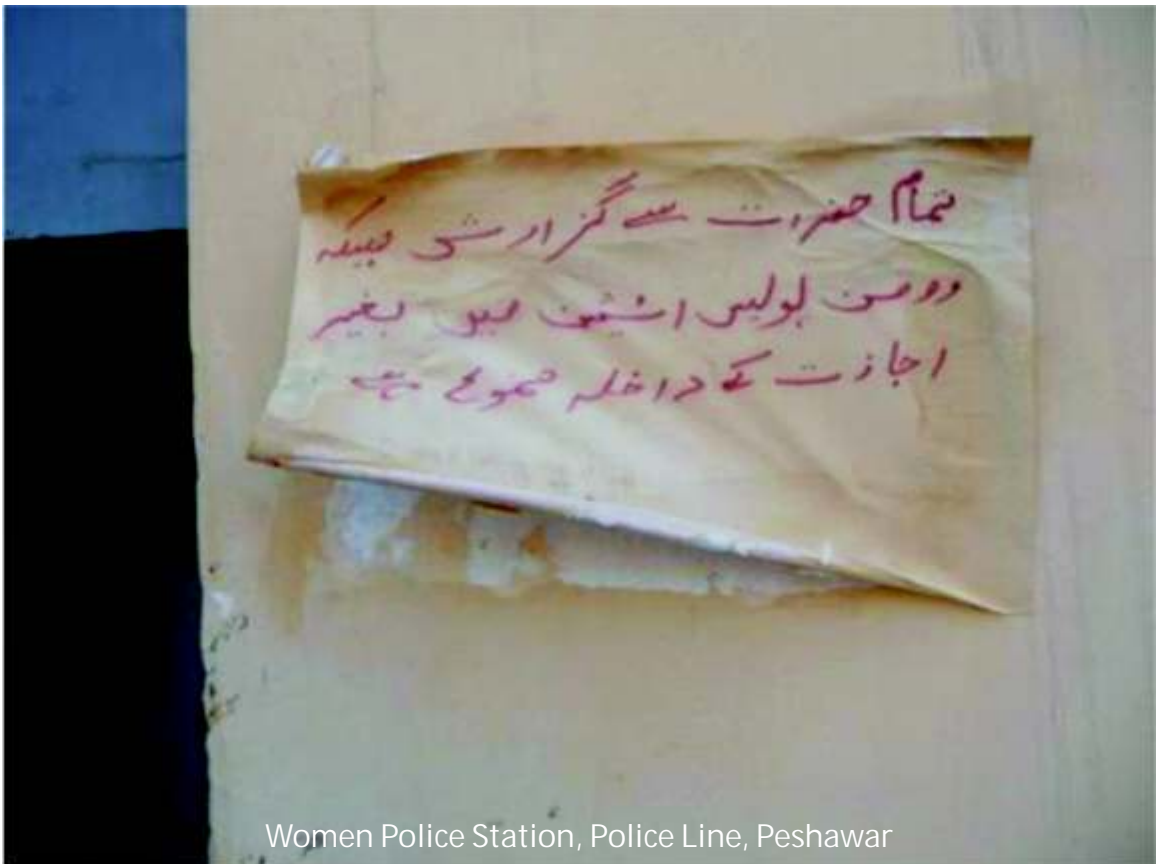 تمام حضرات سے گزارش ہیکہ
وومن پولیس اسٹیشن میں بغیر
اجازت کے داخلہ ممنوع ہے
Women Police Station, Police Line, Peshawar